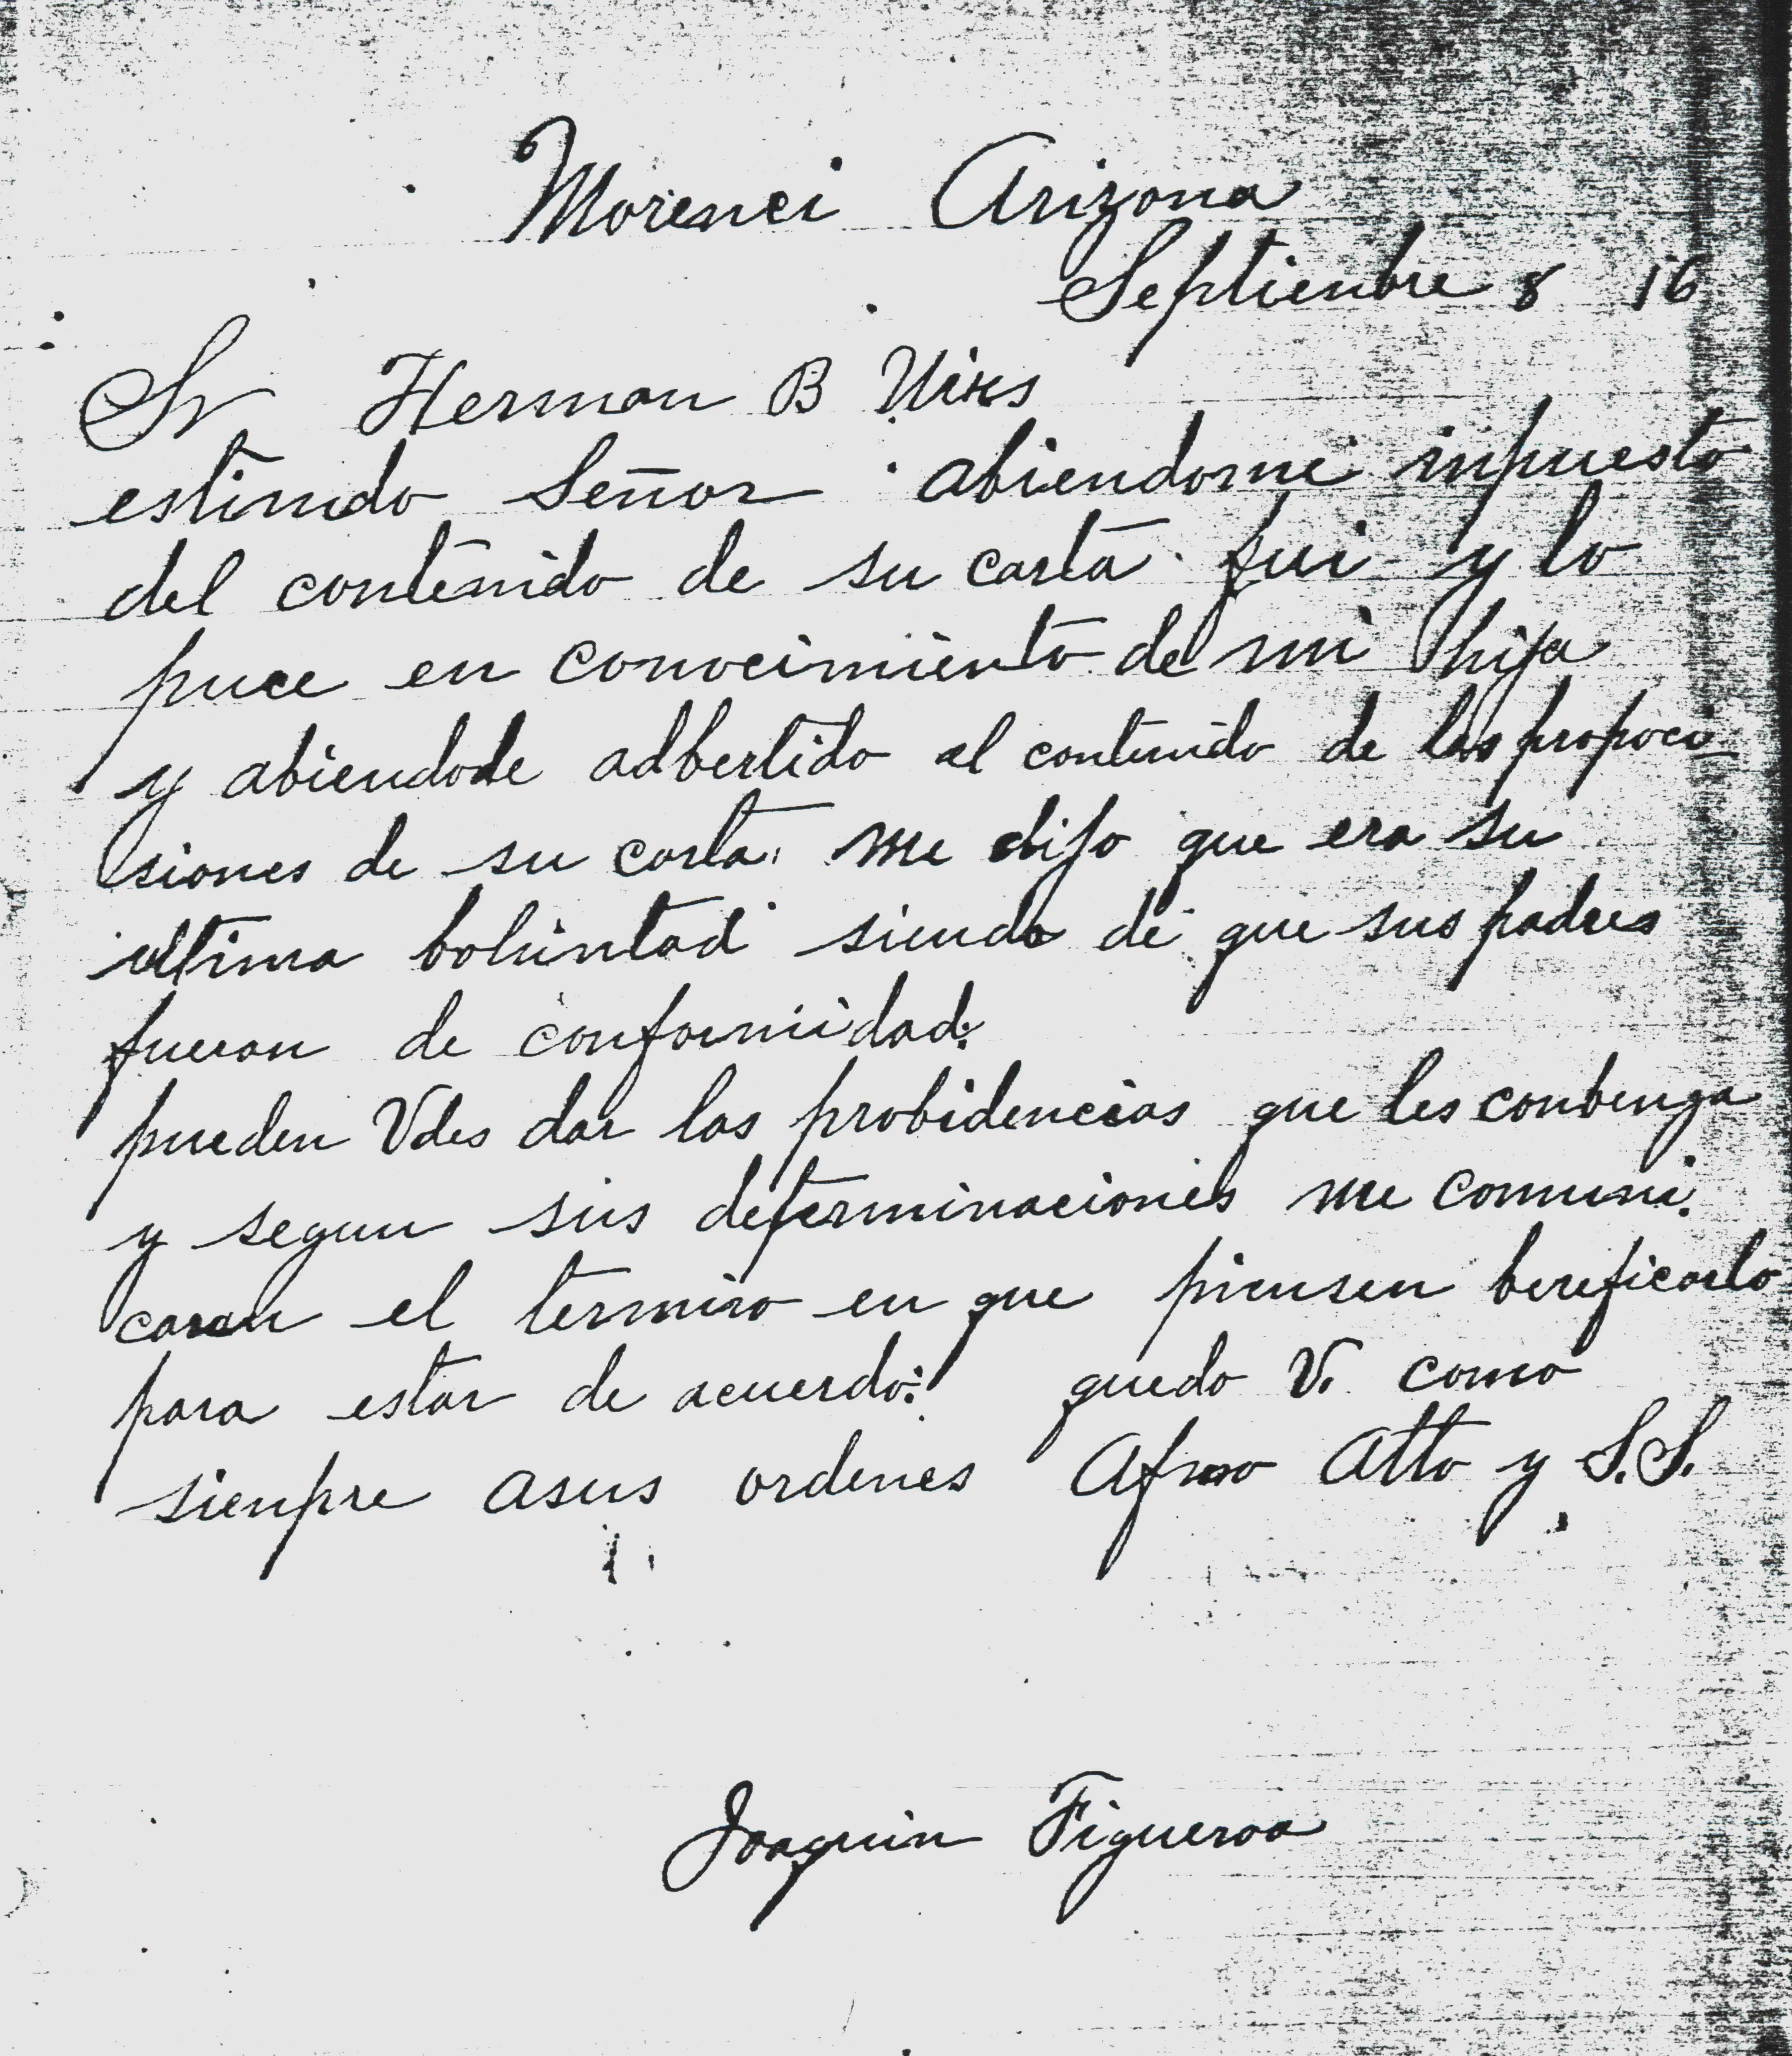 Morenci Arizona
Septienbre 8 16
Sr Herman B
estimdo Señor abiendome inpuesto
del contenido de su carta fui y lo
puce en conocimiento de mi hija
y abiendole adbertido el contenido de las propoci
siones de su carta. me dijo que era su
ultima boluntad siendo de que sus padres
fueran de conformidad.
pueden Vdes dar las probidencias que les conbenga
y segun sus determinaciones me comuni.
caran el termino en que piensen berificarlo
para estar de acuerdo: quedo V. como
sienpre asus ordenes Afmo Atto y S.S.
Joaquin Figueroa